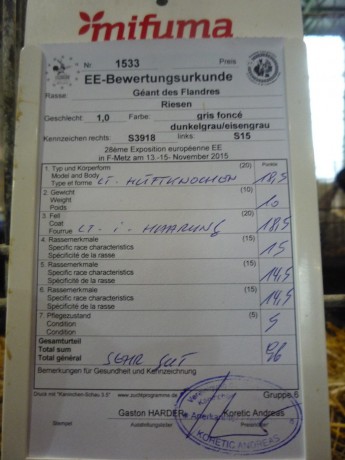 mifuma
Nr. 1533 Preis
EE-Bewertungsurkunde
Rasse: Géant des Flandres
Riesen
Geschlecht 1,0 Farbe: gris foncé
dunkelgrau/eisengrau
Kennzeichen rechts: S3918 links: S15
28ème Exposition européenne EE
in F-Metz am 13.-15- November 2015
1. Typ und Körperform (20) Punkte
Model and Body
Type et forme LT. HÜFTKNOCHEN 18,5
2. Gewicht (10)
Weight
Poids 10
3. Fell (20)
Coat
Fourrue LT. i. HAARUNG 18,5
4. Rassemerkmale (15)
Specific race characteristics 15
Spécificité de la race
5. Rassemerkmale (15)
Specific race characteristics 14,5
Spécificité de la race
6. Rassemerkmale (15)
Specific race characteristics 14,5
Spécificité de la race
7. Pflegezustand (5)
Condition 5
Condition
Gesamturteil
Total sum
Total général SEHR GUT 96
Bemerkungen für Gesundheit und Kennzeichnung
Gruppe 6
Druck mit "Kaninchen-Schau 3.5" www.zuchtprogramme.de
Gaston HARDER Koretic Andreas
Stempel Ausstellungsleiter Preisrichter
KORETIC ANDREAS